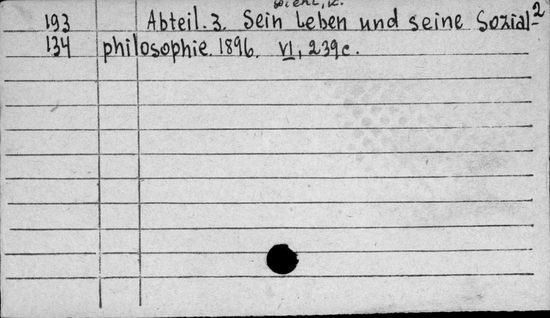 Diehl, K.
2
193 Abteil. 3. Sein Leben und seine Sozial-
134 philosophie. 1896. VI, 239 c.